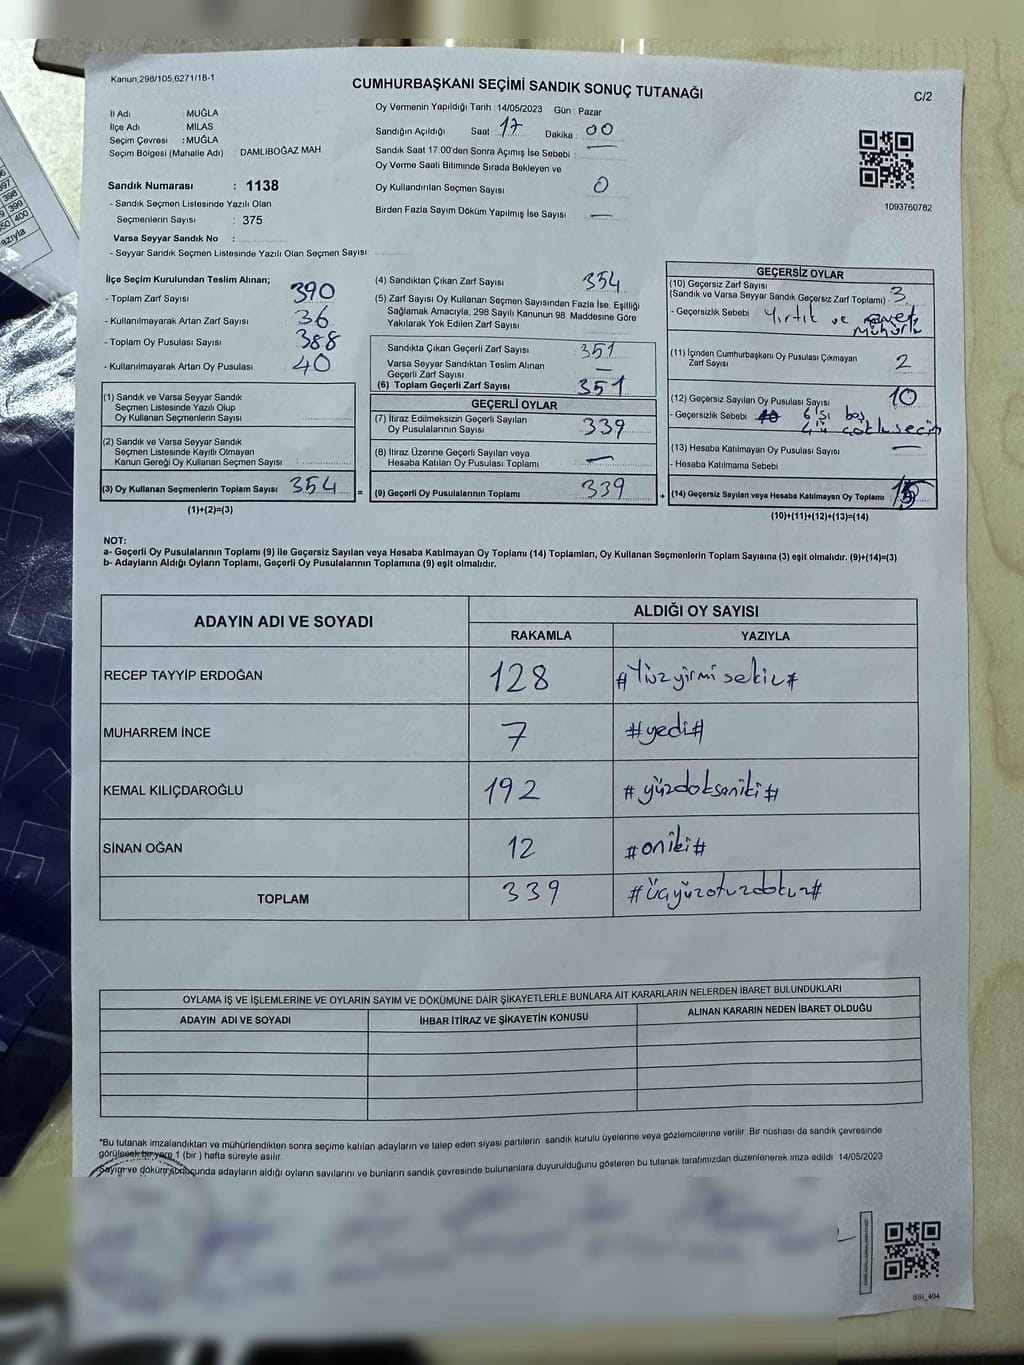 Kanun,298/105,6271/18-1
CUMHURBAŞKANI SEÇİMİ SANDIK SONUÇ TUTANAĞI
C/2
İl Adı : MUĞLA
İlçe Adı : MİLAS
Seçim Çevresi : MUĞLA
Seçim Bölgesi (Mahalle Adı) : DAMLIBOĞAZ MAH
Sandık Numarası : 1138
- Sandık Seçmen Listesinde Yazılı Olan
Seçmenlerin Sayısı : 375
Varsa Seyyar Sandık No :
- Seyyar Sandık Seçmen Listesinde Yazılı Olan Seçmen Sayısı
Oy Vermenin Yapıldığı Tarih :14/05/2023 Gün : Pazar
Sandığın Açıldığı Saat : 17 Dakika : 00
Sandık Saat 17:00'den Sonra Açımış İse Sebebi :
Oy Verme Saati Bitiminde Sırada Bekleyen ve
Oy Kullandırılan Seçmen Sayısı 0
Birden Fazla Sayım Döküm Yapılmış İse Sayısı —
1093760782
İlçe Seçim Kurulundan Teslim Alınan;
- Toplam Zarf Sayısı 390
- Kullanılmayarak Artan Zarf Sayısı 36
- Toplam Oy Pusulası Sayısı 388
- Kullanılmayarak Artan Oy Pusulası 40
(1) Sandık ve Varsa Seyyar Sandık
Seçmen Listesinde Yazılı Olup
Oy Kullanan Seçmenlerin Sayısı
(2) Sandık ve Varsa Seyyar Sandık
Seçmen Listesinde Kayıtlı Olmayan
Kanun Gereği Oy Kullanan Seçmen Sayısı
(3) Oy Kullanan Seçmenlerin Toplam Sayısı 354
(1)+(2)=(3)
=
(4) Sandıktan Çıkan Zarf Sayısı 354
(5) Zarf Sayısı Oy Kullanan Seçmen Sayısından Fazla İse, Eşitliği
Sağlamak Amacıyla, 298 Sayılı Kanunun 98. Maddesine Göre
Yakılarak Yok Edilen Zarf Sayısı
Sandıkta Çıkan Geçerli Zarf Sayısı 351
Varsa Seyyar Sandıktan Teslim Alınan
Geçerli Zarf Sayısı —
(6) Toplam Geçerli Zarf Sayısı 351
GEÇERLİ OYLAR
(7) İtiraz Edilmeksizin Geçerli Sayılan
Oy Pusulalarının Sayısı 339
(8) İtiraz Üzerine Geçerli Sayılan veya
Hesaba Katılan Oy Pusulası Toplamı —
(9) Geçerli Oy Pusulalarının Toplamı 339
+
GEÇERSİZ OYLAR
(10) Geçersiz Zarf Sayısı
(Sandık ve Varsa Seyyar Sandık Geçersiz Zarf Toplamı) 3
- Geçersizlik Sebebi Yırtık ve
mühürlü
(11) İçinden Cumhurbaşkanı Oy Pusulası Çıkmayan
Zarf Sayısı 2
(12) Geçersiz Sayılan Oy Pusulası Sayısı 10
- Geçersizlik Sebebi 6'sı boş
4'ü çoklu seçim
(13) Hesaba Katılmayan Oy Pusulası Sayısı —
- Hesaba Katılmama Sebebi
(14) Geçersiz Sayılan veya Hesaba Katılmayan Oy Toplamı 15
(10)+(11)+(12)+(13)=(14)
NOT:
a- Geçerli Oy Pusulalarının Toplamı (9) ile Geçersiz Sayılan veya Hesaba Katılmayan Oy Toplamı (14) Toplamları, Oy Kullanan Seçmenlerin Toplam Sayısına (3) eşit olmalıdır. (9)+(14)=(3)
b- Adayların Aldığı Oyların Toplamı, Geçerli Oy Pusulalarının Toplamına (9) eşit olmalıdır.
ADAYIN ADI VE SOYADI
ALDIĞI OY SAYISI
RAKAMLA YAZIYLA
RECEP TAYYİP ERDOĞAN 128 #Yüzyirmi sekiz#
MUHARREM İNCE 7 #yedi#
KEMAL KILIÇDAROĞLU 192 #yüzdoksaniki#
SİNAN OĞAN 12 #oniki#
TOPLAM 339 #üçyüzotuzdokuz#
OYLAMA İŞ VE İŞLEMLERİNE VE OYLARIN SAYIM VE DÖKÜMÜNE DAİR ŞİKAYETLERLE BUNLARA AİT KARARLARIN NELERDEN İBARET BULUNDUKLARI
ADAYIN ADI VE SOYADI İHBAR İTİRAZ VE ŞİKAYETİN KONUSU ALINAN KARARIN NEDEN İBARET OLDUĞU
*Bu tutanak imzalandıktan ve mühürlendikten sonra seçime katılan adayların ve talep eden siyasi partilerin sandık kurulu üyelerine veya gözlemcilerine verilir. Bir nüshası da sandık çevresinde
görülecek bir yere 1 (bir) hafta süreyle asılır.
Sayım ve döküm sonucunda adayların aldığı oyların sayılarını ve bunların sandık çevresinde bulunanlara duyurulduğunu gösteren bu tutanak tarafımızdan düzenlenerek imza edildi 14/05/2023
SSI_404